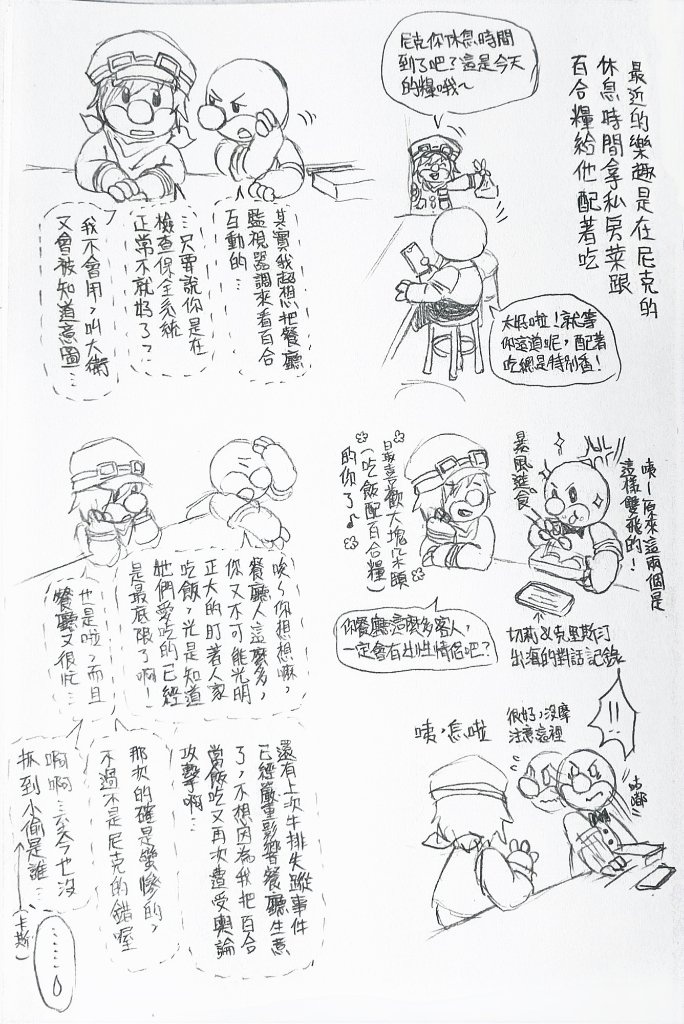 最近的樂趣是在尼克的
休息時間拿私房菜跟
百合糧給他配著吃
尼克你休息時間
到了吧？這是今天
的糧哦～
太好啦！就等
你這道呢，配著
吃總是特別香！
其實我超想把餐廳
監視器調來看百合
互動的…
…只要說你是在
檢查保全系統
正常不就好了？…
我不會用，叫大衛
又會被知道意圖…
咦－原來這兩個是
這樣雙飛的！
暴風進食
最喜歡大塊朵頤
（吃飯配百合糧）
的你了♪
切莉&克里斯汀
出海的對話記錄
你餐廳這麼多客人，
一定會有出性情侶吧？
唉，你想想嘛，
餐廳人這麼多，
你又不可能光明
正大的盯著人家
吃飯，光是知道
她們愛吃的已經
是最底限了啊！
也是啦，而且
餐廳又很忙…
!!
很好，沒摩
注意這裡
咦，怎啦
咕嘟
還有上次牛排失蹤事件
已經嚴重影響餐廳生意
了，不想因為我把百合
當飯吃又再次遭受輿論
攻擊啊…
那次的確是蠻慘的，
不過不是尼克的錯喔
啊啊…今天也沒
抓到小偷是誰…
（卡斯）
……